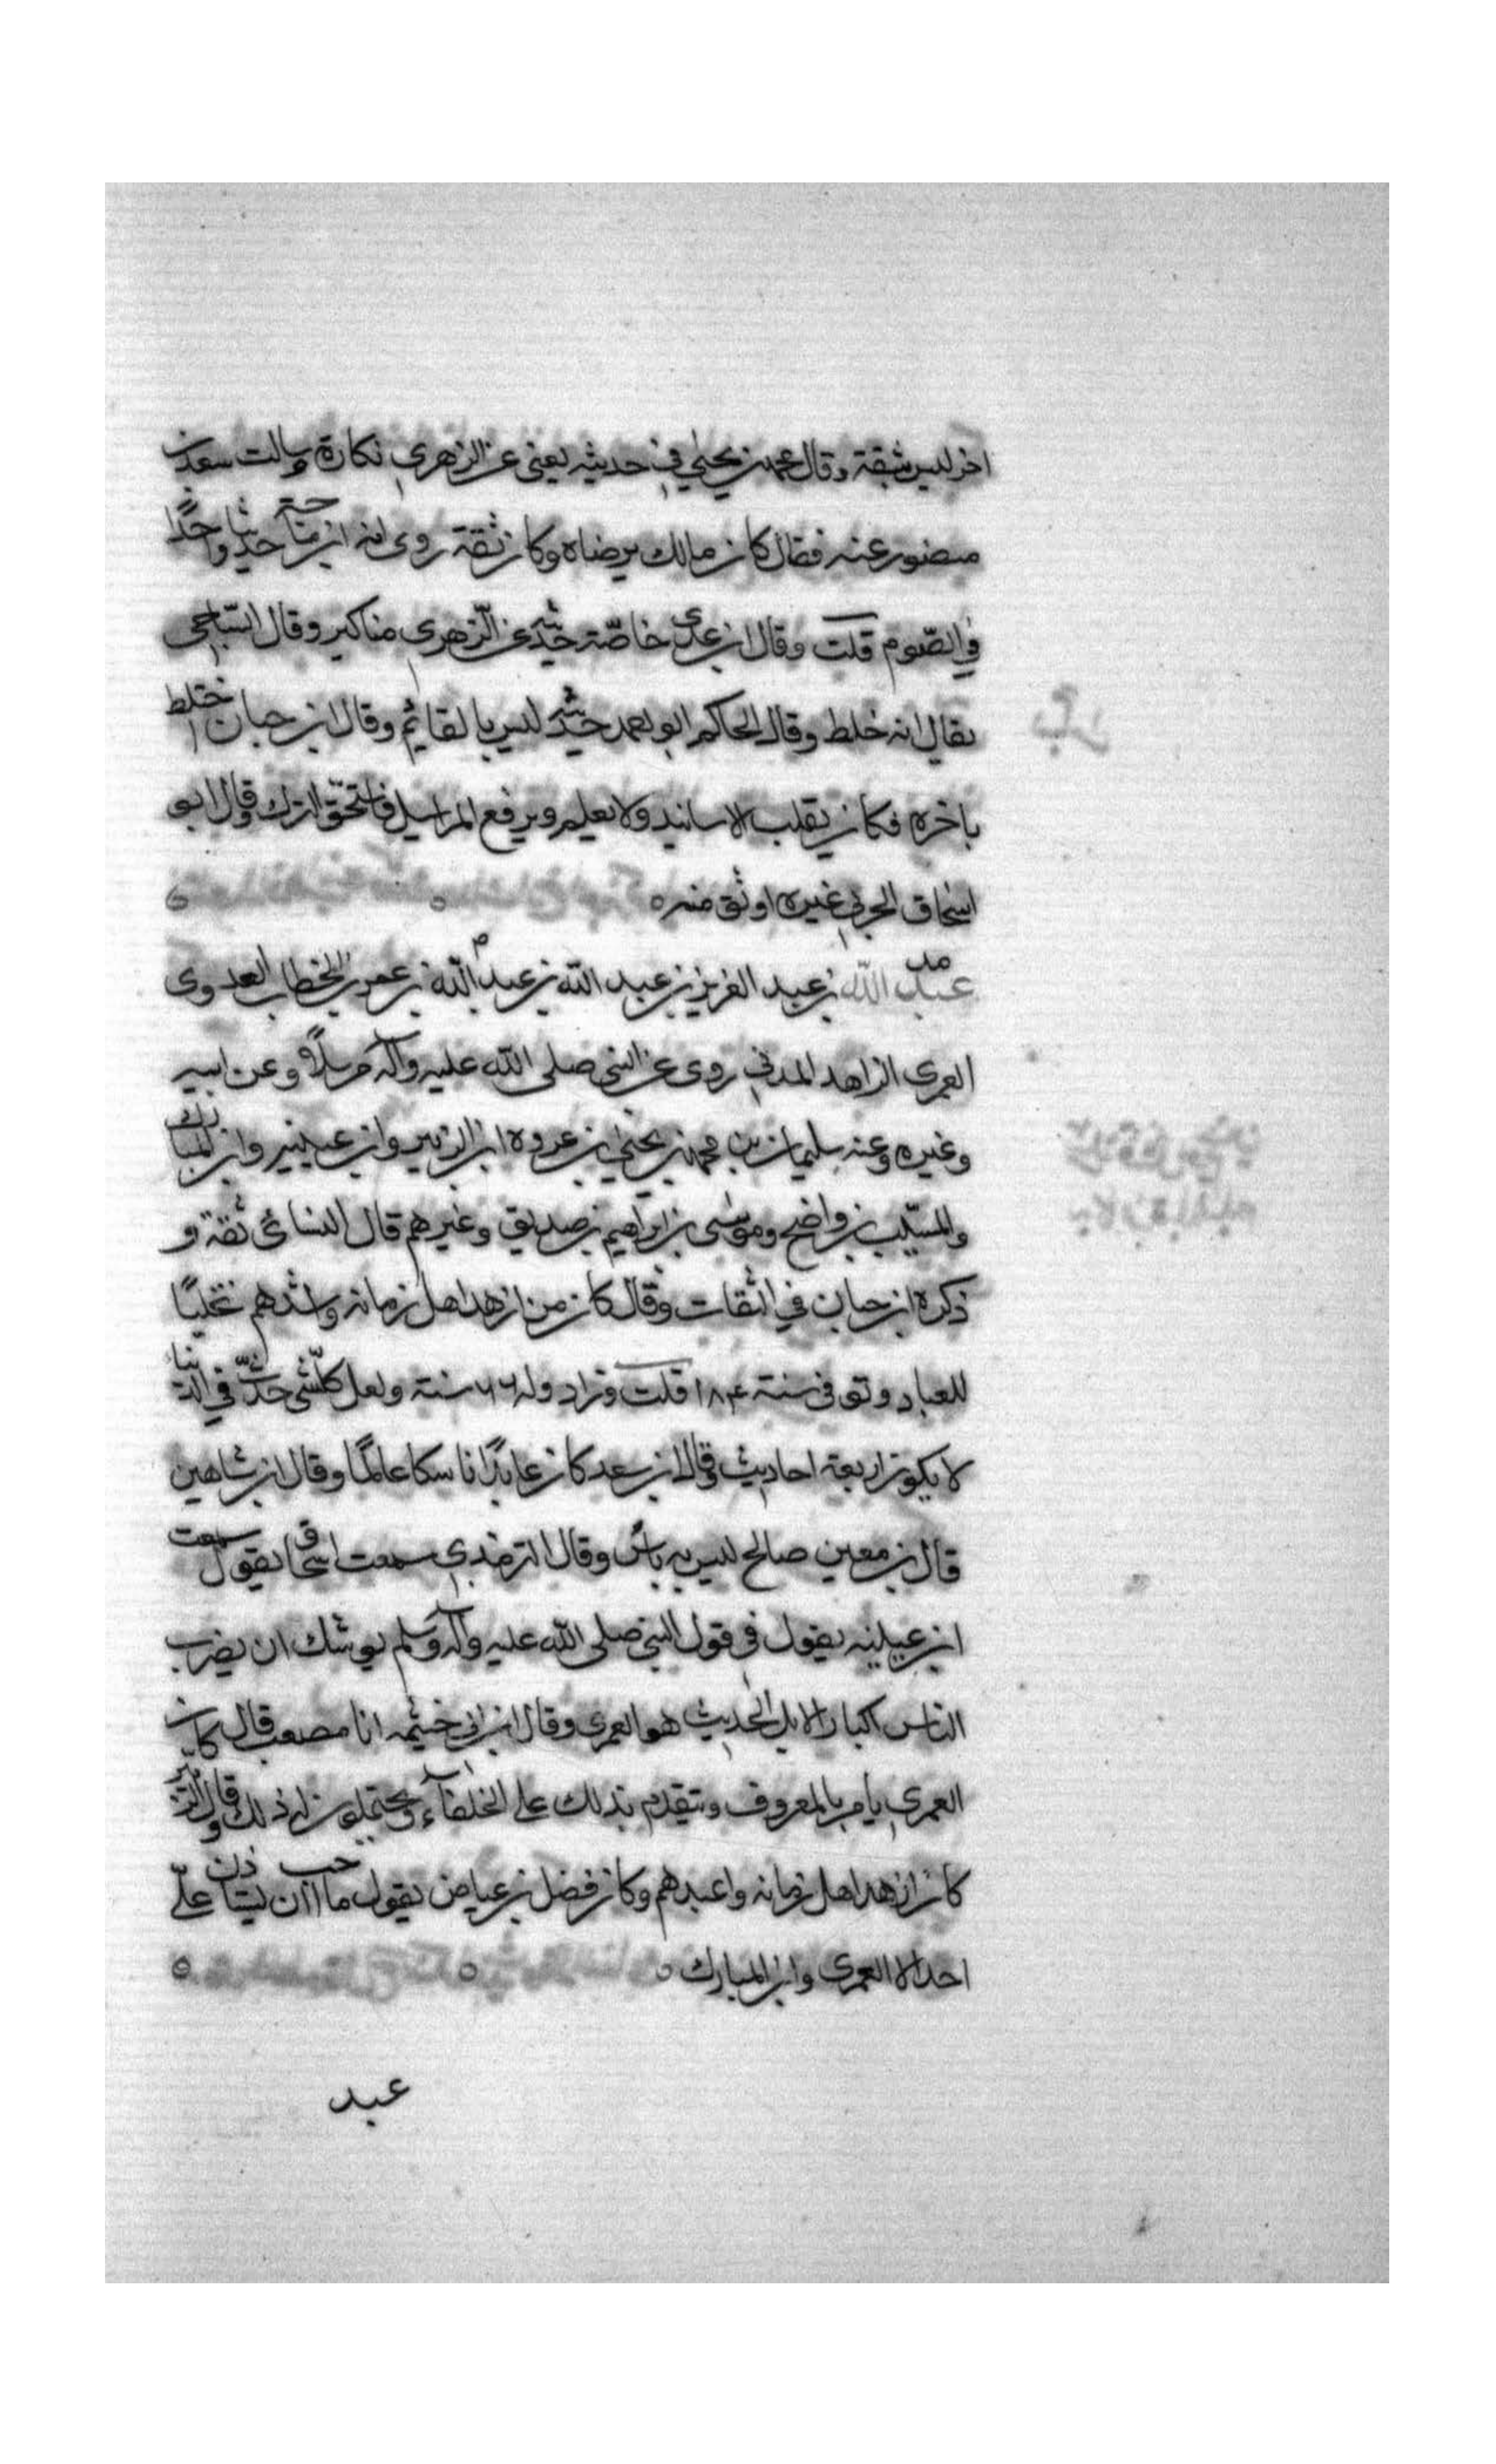 اخر ليس بثقة وقال محمد بن يحيى في حديثه يعني عن الزهري نكارة وسالت سعيد بن
منصور عنه فقال كان مالك يرضاه وكان ثقة روى له ابن ماجة حديثا واحدًا
في الصّوم قلت وقال ابن عدي خاصّة حديثه عن الزّهري مناكير وقال السّاجي
يقال انه خلط وقال الحاكم ابو احمد حديثه ليس بالقائم وقال ابن حبان اختلط
باخره فكان يقلب الاسانيد ولا يعلم ويرفع المراسيل فاستحقّ الترك وقال ابو
اسحاق الحربي غيره اوثق منه
عبد الله بن عبد العزيز بن عبد الله بن عبد الله بن عمر بن الخطاب العدوى
العمرى الزاهد المدني روى عن النبي صلى الله عليه وآله مرسلًا وعن ابيه
وغيره وعنه سليمان بن محمد بن يحيى بن عروه ابن الزبير وابن عيينه وابن المبارك
والمسيّب بن واضح وموسى بن ابراهيم بن صديق وغيرهم قال النسائى ثقة و
ذكره ابن حبان في الثقات وقال كان من ازهد اهل زمانه واشدهم تخليًا
للعباد وتوفى سنة ١٨٤ قلت وزاد وله ٦٦ سنة ولعل كلّ شى حدّث في الدنيا
لا يكون اربعة احاديث وقال ابن سعد كان عابدًا ناسكا عالمًا وقال ابن شاهين
قال ابن معين صالح ليس به باس وقال الترمذي سمعت اسحاق يقول سمعت
ابن عيينه يقول فى قول النبي صلى الله عليه وآله وسلم يوشك ان يضرب
الناس اكباد الابل الحديث هو العمرى وقال ابن ابي خيثمه انا مصعب قال كان
العمري يأمر بالمعروف ويتقدم بذلك على الخلفآء ويحتملون له ذلك وقال الزبير
كان ازهد اهل زمانه واعبدهم وكان فضل بن عياض يقول ما احب ان يستاذن علىّ
احد الا العمرى وابن المبارك
عبد